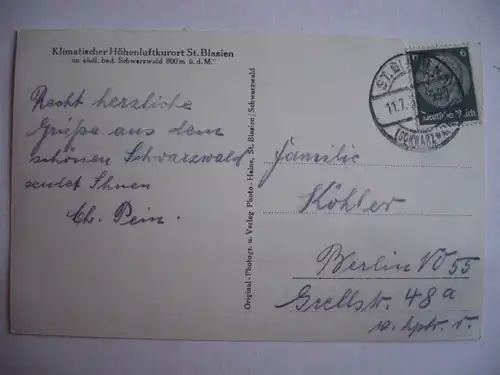 Klimatischer Höhenluftkurort St. Blasien
im südl. bad. Schwarzwald 800 m ü. d. M.
Recht herzliche
Grüße aus dem
schönen Schwarzwald
sendet Ihnen
Chr. Pein.
Original-Photogr. u. Verlag Photo-Halse, St. Blasien/Schwarzwald
ST. BLASIEN
11.7.3
(SCHWARZW.)
6
6
Deutsches Reich
Familie
Köhler
Berlin NO 55
Grellstr. 48a
v. hptr. r.